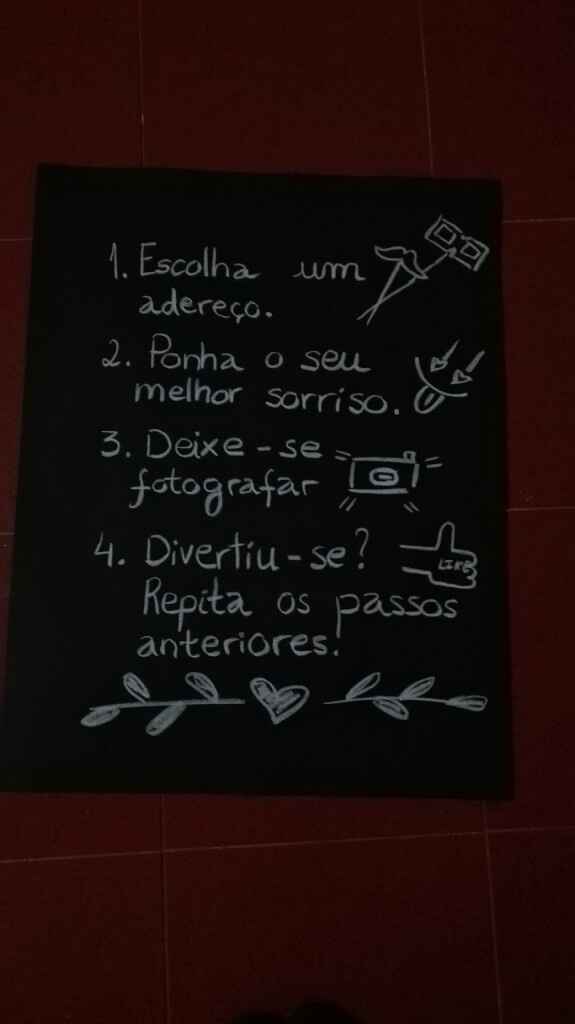 1. Escolha um
adereço.
2. Ponha o seu
melhor sorriso.
3. Deixe-se
fotografar
4. Divertiu-se?
LIKE
Repita os passos
anteriores!